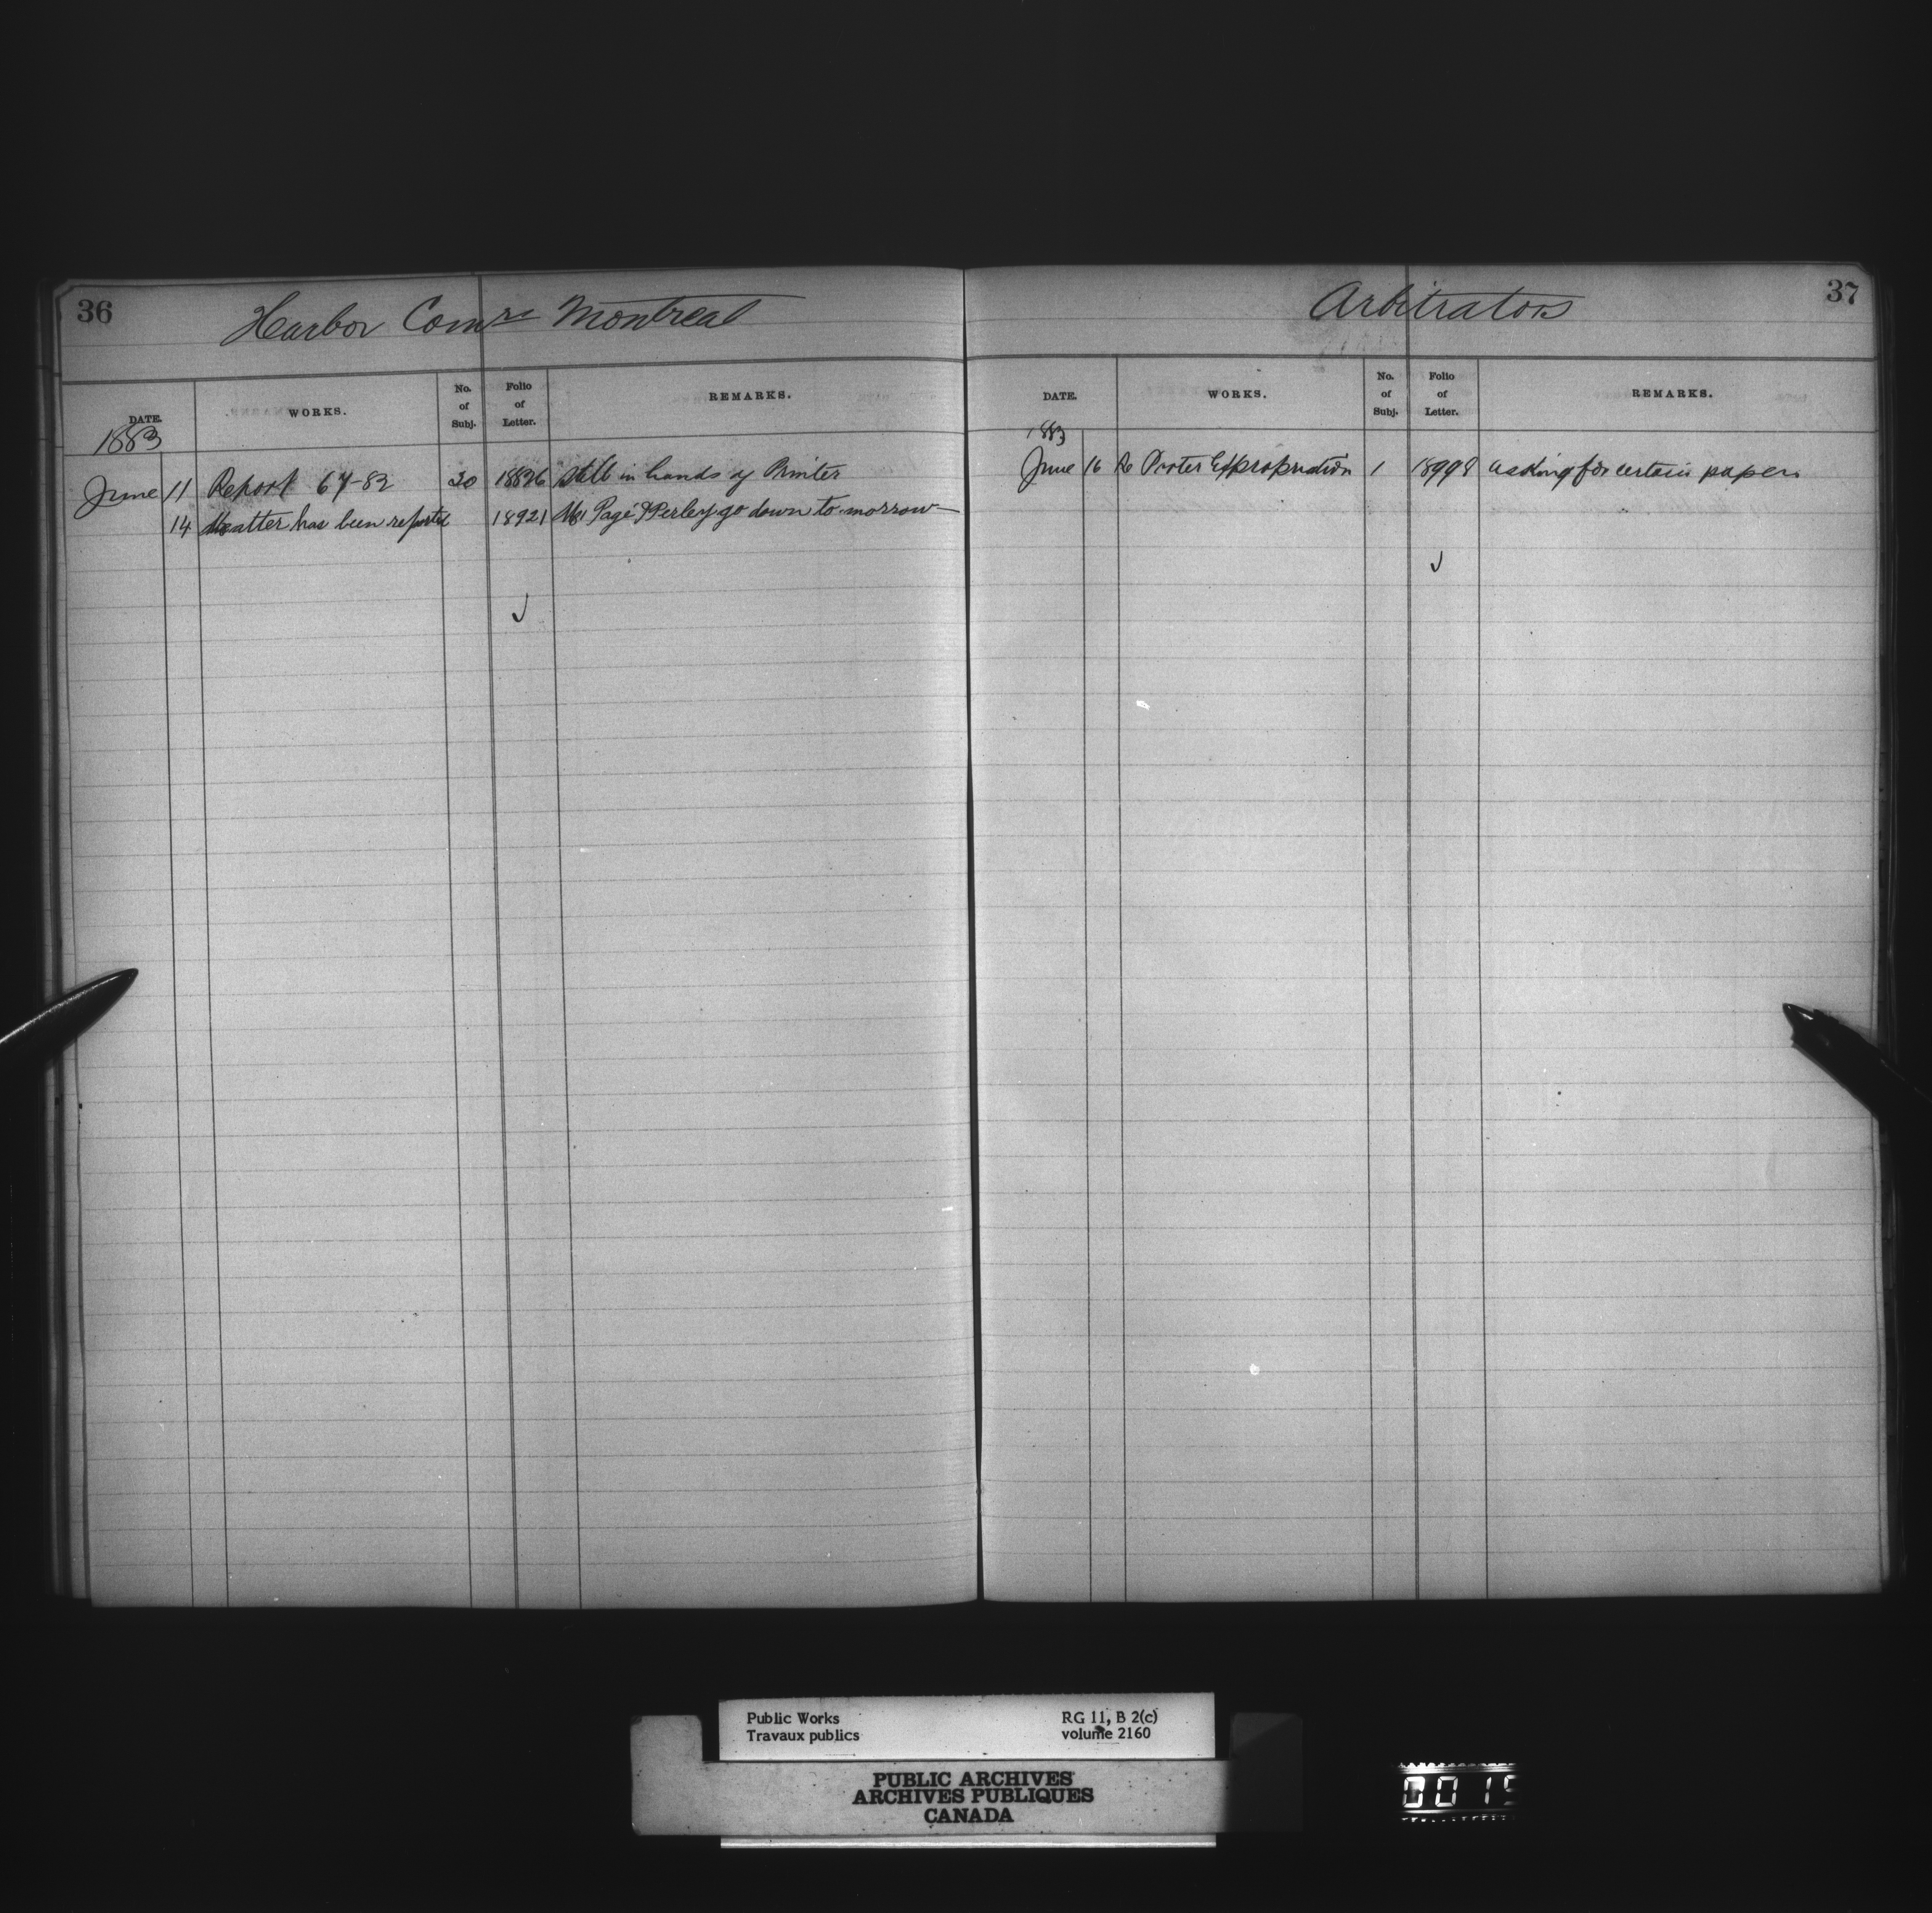 36
Harbor Comrs Montreal
DATE. WORKS. No. of Subj. Folio of Letter. REMARKS.
1883
June 11 Report 67-82 20 18826 Still in hands of Printer
14 Matter has been reported 18921 Page & Perley go down to-morrow
✓
37
Arbitrators
DATE. WORKS. No. of Subj. Folio of Letter. REMARKS.
1883
June 16 Re Porter Expropriation 1 18998 asking for certain papers
✓
Public Works RG 11, B 2(c)
Travaux publics volume 2160
PUBLIC ARCHIVES
ARCHIVES PUBLIQUES
CANADA
0015